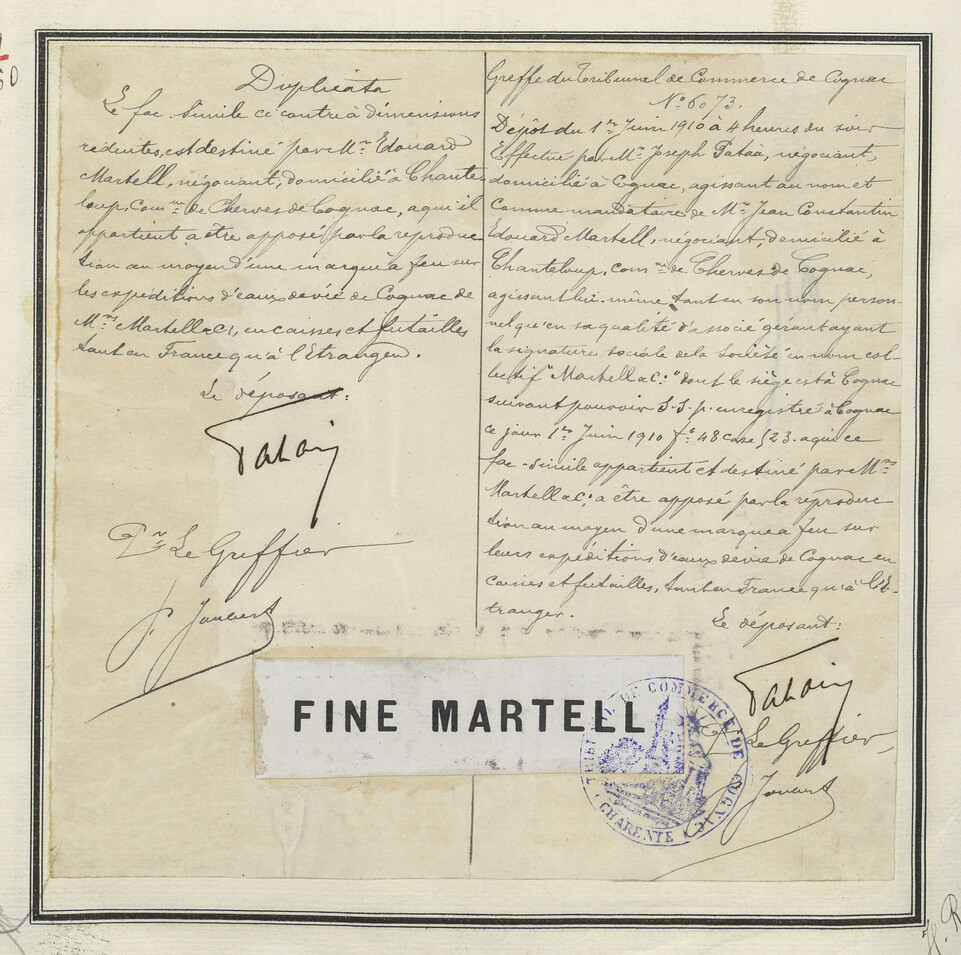 Duplicata
Le fac simile ci contre à dimensions
réduites, est destiné par Mr. Edouard
Martell, négociant, domicilié à Chante-
loup, comne de Cherves de Cognac, a qui il
appartient a être apposé par la reproduc
tion au moyen d'une marqu à feu sur
les expéditions d'eaux devie de Cognac de
Mrs Martell & Ci, en caisses et futailles
tant en France qu'à l'Etranger.
Le déposant:
Pr Le Greffier
J. Joubert
Greffe du Tribunal de Commerce de Cognac
No 6073.
Dépôt du 1er Juin 1910 à 4 heures du soir
Effectué par Mr Joseph Pataa, négociant,
domicilié à Cognac, agissant au nom et
comme mandataire de Mr Jean Constantin
Edouard Martell, négociant, domicilié à
Chanteloup, comne de Cherves de Cognac,
agissant lui même tant en son nom person-
nel qu'en sa qualité d'associé gérant ayant
la signature sociale de la Société en nom col-
lectif "Martell & C." dont le siège est à Cognac
suivant pouvoir S.S.p. enregistré à Cognac
ce jour 1er Juin 1910 fo 48 case 523. a qui ce
fac-simile appartient et destiné par Mrs
Martell & C. a être apposé par la reproduc-
tion au moyen d'une marque a feu sur
leurs expéditions d'eaux devie de Cognac en
caisses et futailles, tant en France qu'à l'E-
tranger.
Le déposant:
Le Greffier
Joubert
FINE MARTELL
TRIBUNAL DE COMMERCE DE COGNAC
CHARENTE